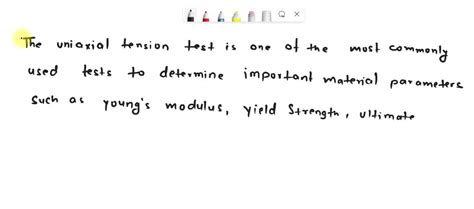 The uniaxial tension test is one of the most commonly
used tests to determine important material parameters
such as young's modulus, yield strength, ultimate